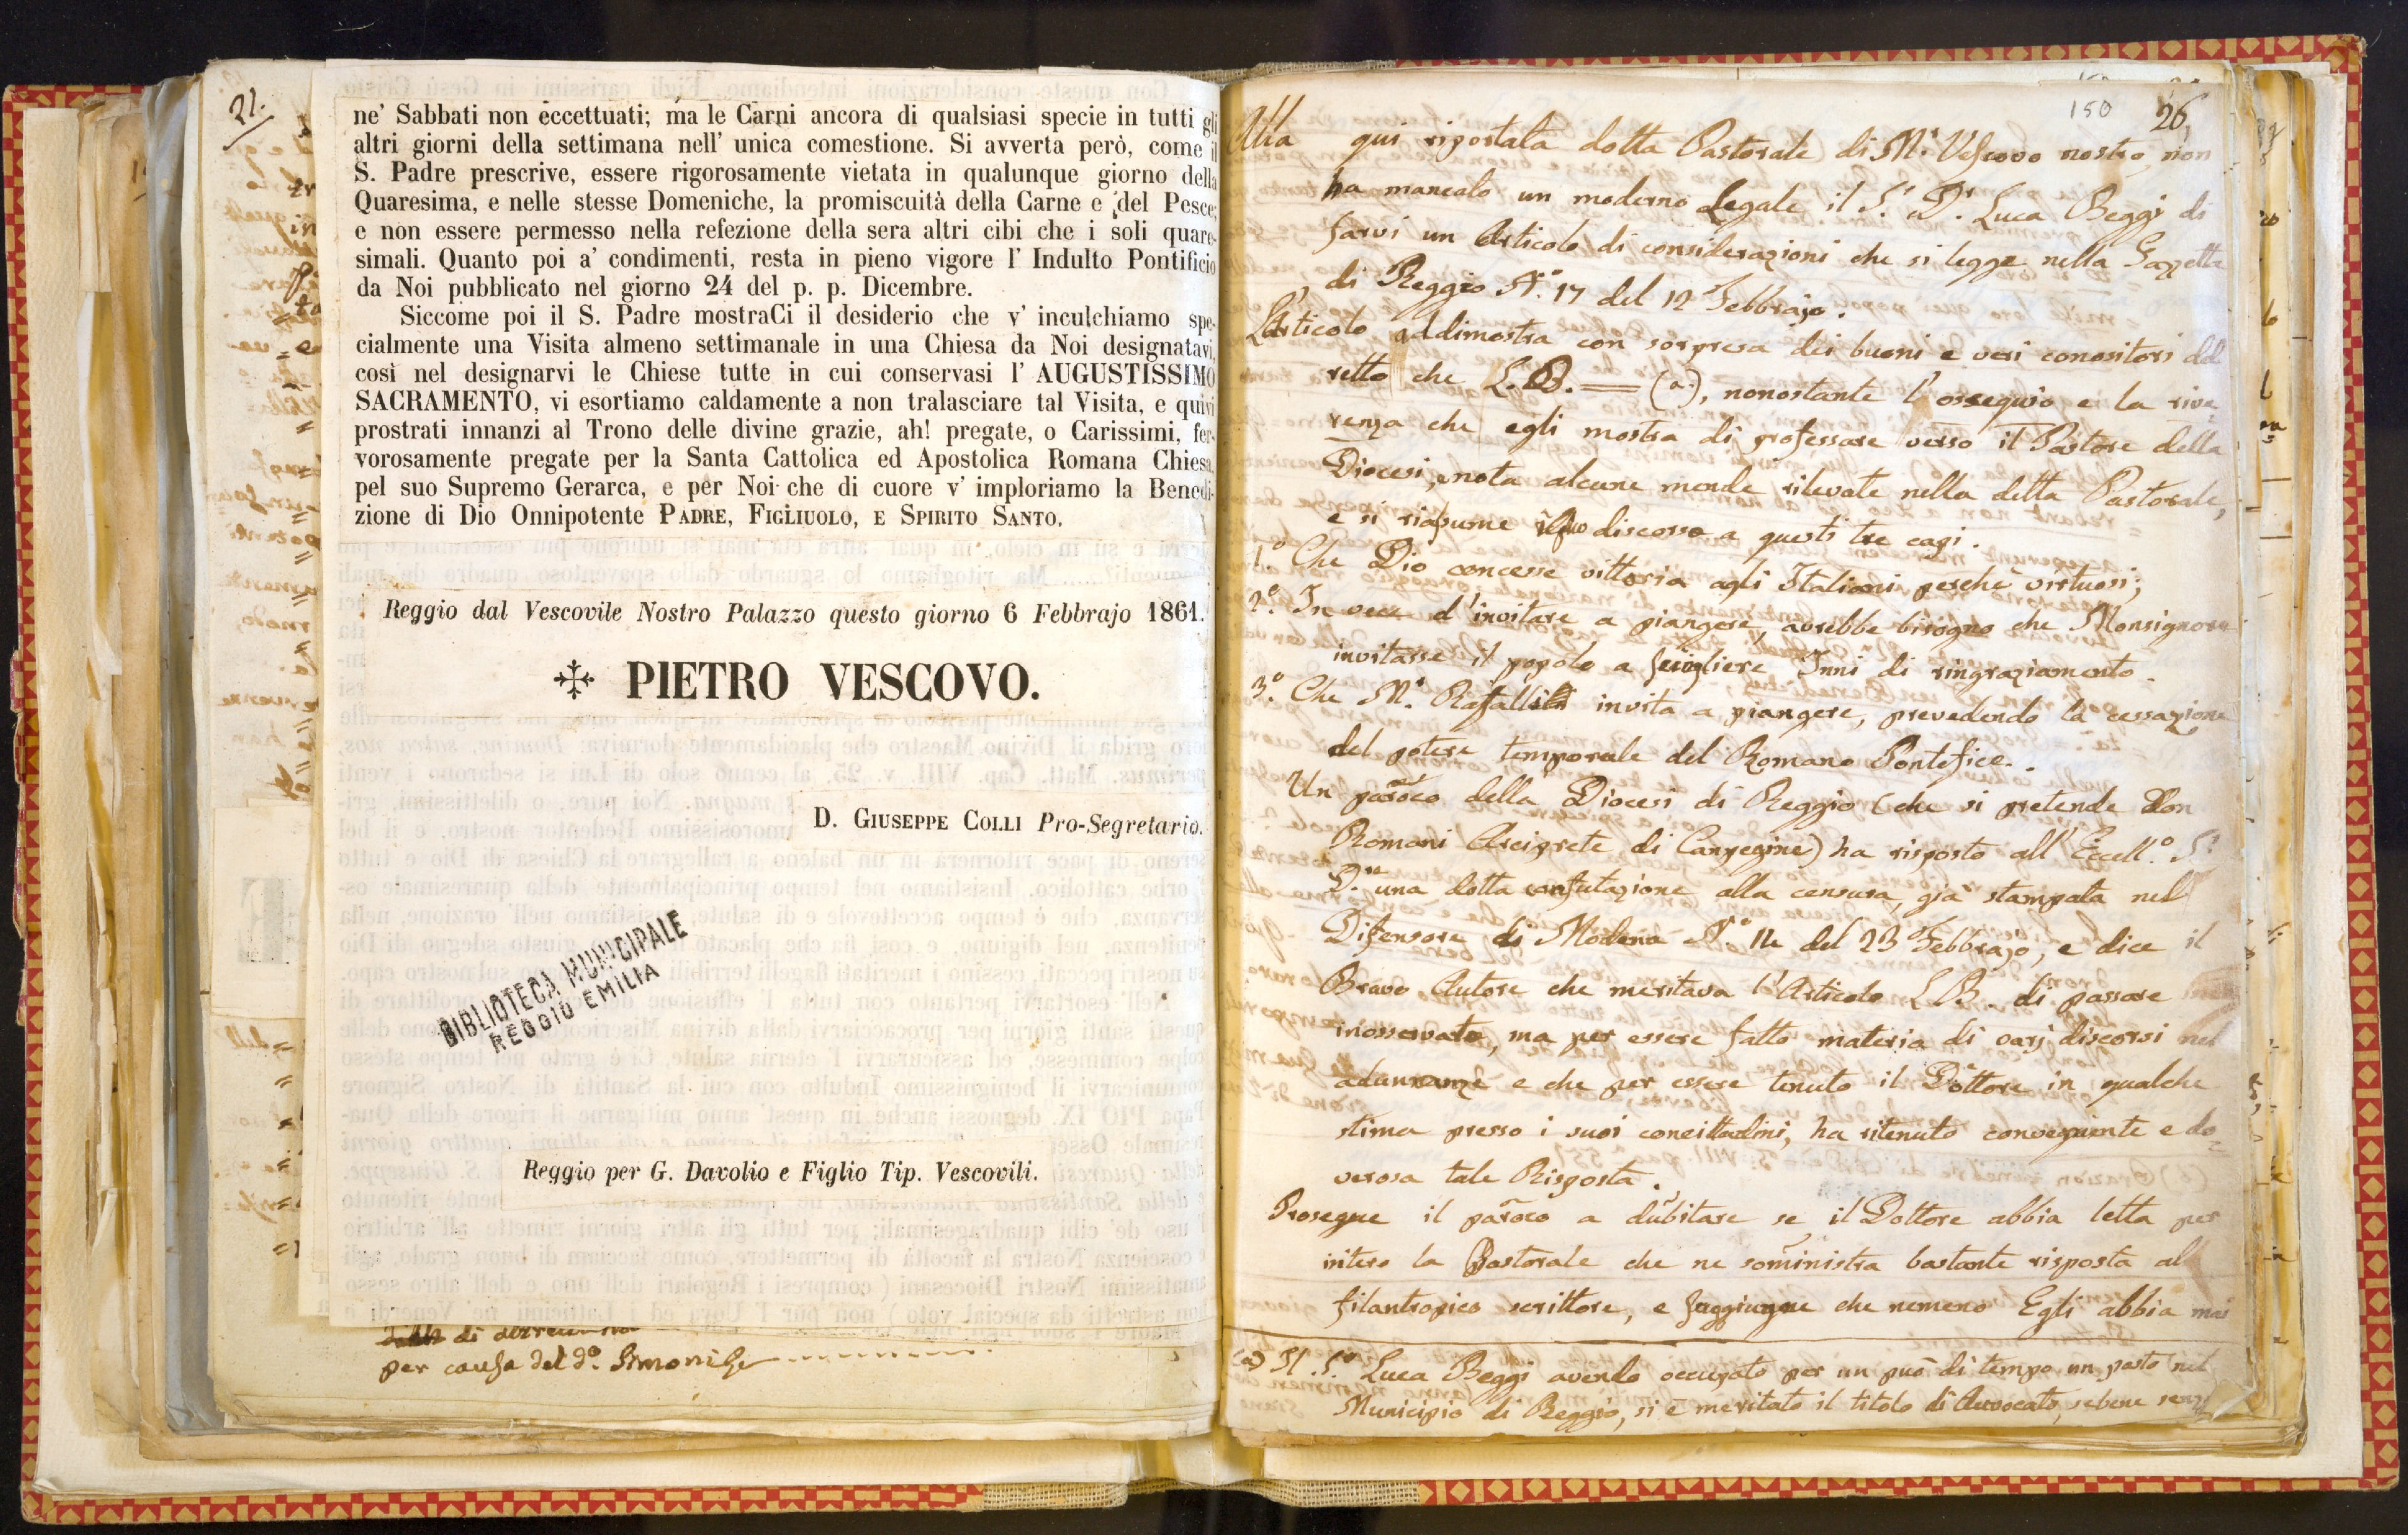 21.
ne' Sabbati non eccettuati; ma le Carni ancora di qualsiasi specie in tutti gli
altri giorni della settimana nell' unica comestione. Si avverta però, come il
S. Padre prescrive, essere rigorosamente vietata in qualunque giorno della
Quaresima, e nelle stesse Domeniche, la promiscuità della Carne e del Pesce;
e non essere permesso nella refezione della sera altri cibi che i soli quare-
simali. Quanto poi a' condimenti, resta in pieno vigore l' Indulto Pontificio
da Noi pubblicato nel giorno 24 del p. p. Dicembre.
Siccome poi il S. Padre mostraCi il desiderio che v' inculchiamo spe-
cialmente una Visita almeno settimanale in una Chiesa da Noi designatavi,
così nel designarvi le Chiese tutte in cui conservasi l' AUGUSTISSIMO
SACRAMENTO, vi esortiamo caldamente a non tralasciare tal Visita, e quivi
prostrati innanzi al Trono delle divine grazie, ah! pregate, o Carissimi, fer-
vorosamente pregate per la Santa Cattolica ed Apostolica Romana Chiesa,
pel suo Supremo Gerarca, e per Noi che di cuore v' imploriamo la Benedi-
zione di Dio Onnipotente PADRE, FIGLIUOLO, E SPIRITO SANTO.
Reggio dal Vescovile Nostro Palazzo questo giorno 6 Febbrajo 1861.
✣ PIETRO VESCOVO.
D. GIUSEPPE COLLI Pro-Segretario.
BIBLIOTECA MUNICIPALE
REGGIO EMILIA
Reggio per G. Davolio e Figlio Tip. Vescovili.
per causa del d.º Simonise
150 26
Alla qui riportata dotta Pastorale di M.r Vescovo nostro, non
ha mancato un moderno Legale il S.r D.r Luca Beggi di
farvi un Articolo di considerazioni che si legge nella Gazzetta
di Reggio N.º 17 del 12 Febbrajo.
L'Articolo addimostra con sorpresa dei buoni e veri conositori del
retto che L.B. = (a), nonostante l'ossequio e la rive
renza che egli mostra di professare verso il Pastore della
Diocesi, nota alcune mende rilevate nella detta Pastorale,
e si riassume il suo discorso a questi tre capi.
1.º Che Dio concesse vittoria agli Italiani perchè virtuosi;
2.º In vece d'invitare a piangere, avrebbe bisogno che Monsignore
invitasse il popolo a sciogliere Inni di ringraziamento.
3.º Che M.r Raffalli invita a piangere, prevedendo la cessazione
del potere temporale del Romano Pontefice.
Un paroco della Diocesi di Reggio (che si pretende Don
Romani Arciprete di Campegine) ha risposto all'Eccell.º S.r
D.r una dotta confutazione alla censura, già stampata nel
Difensore di Modena N.º 12 del 23 Febbrajo, e dice il
Bravo Autore che meritava l'Articolo L.B. di passare
inosservato, ma per essere fatto materia di varj discorsi nel
adunanze e che per essere tenuto il Dottore in qualche
stima presso i suoi concittadini, ha ritenuto conveniente e do
verosa tale Risposta.
Prosegue il paroco a dubitare se il Dottore abbia letta per
intero la Pastorale che ne somministra bastante risposta al
filantropico scrittore, e soggiunge che nemeno Egli abbia mai
(a) Il S.r Luca Beggi avendo occupato per un può di tempo un posto nel
Municipio di Reggio, si è meritato il titolo di Avvocato, sebene